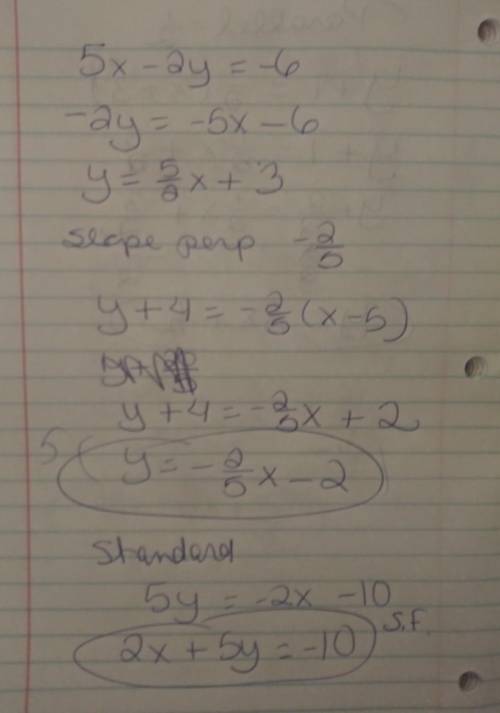 5x - 2y = -6
-2y = -5x - 6
y = 5/2 x + 3
slope perp -2/5
y + 4 = -2/5 (x - 5)
y + 4 = -2/5 x + 2
5( y = -2/5 x - 2
Standard
5y = -2x - 10
2x + 5y = -10 S.F.